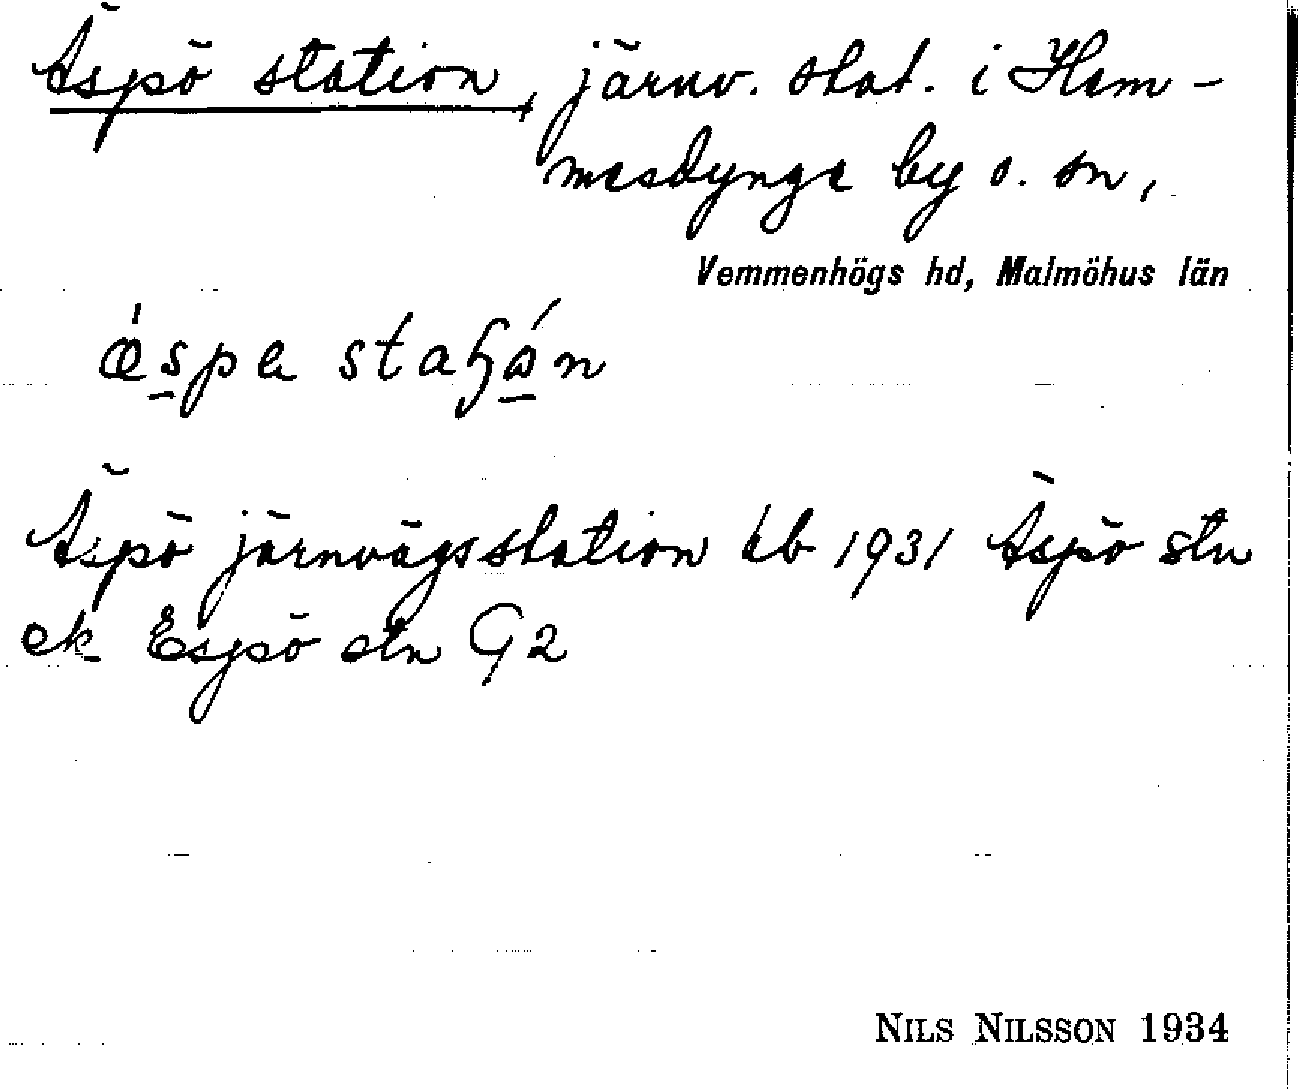 Äspö station, järnv. stat. i Hem-
mesdynge by o. sn,
Vemmenhögs hd, Malmöhus län
Äspö järnvägsstation kb 1931 Äspö stn
ek Espö stn G2
NILS NILSSON 1934